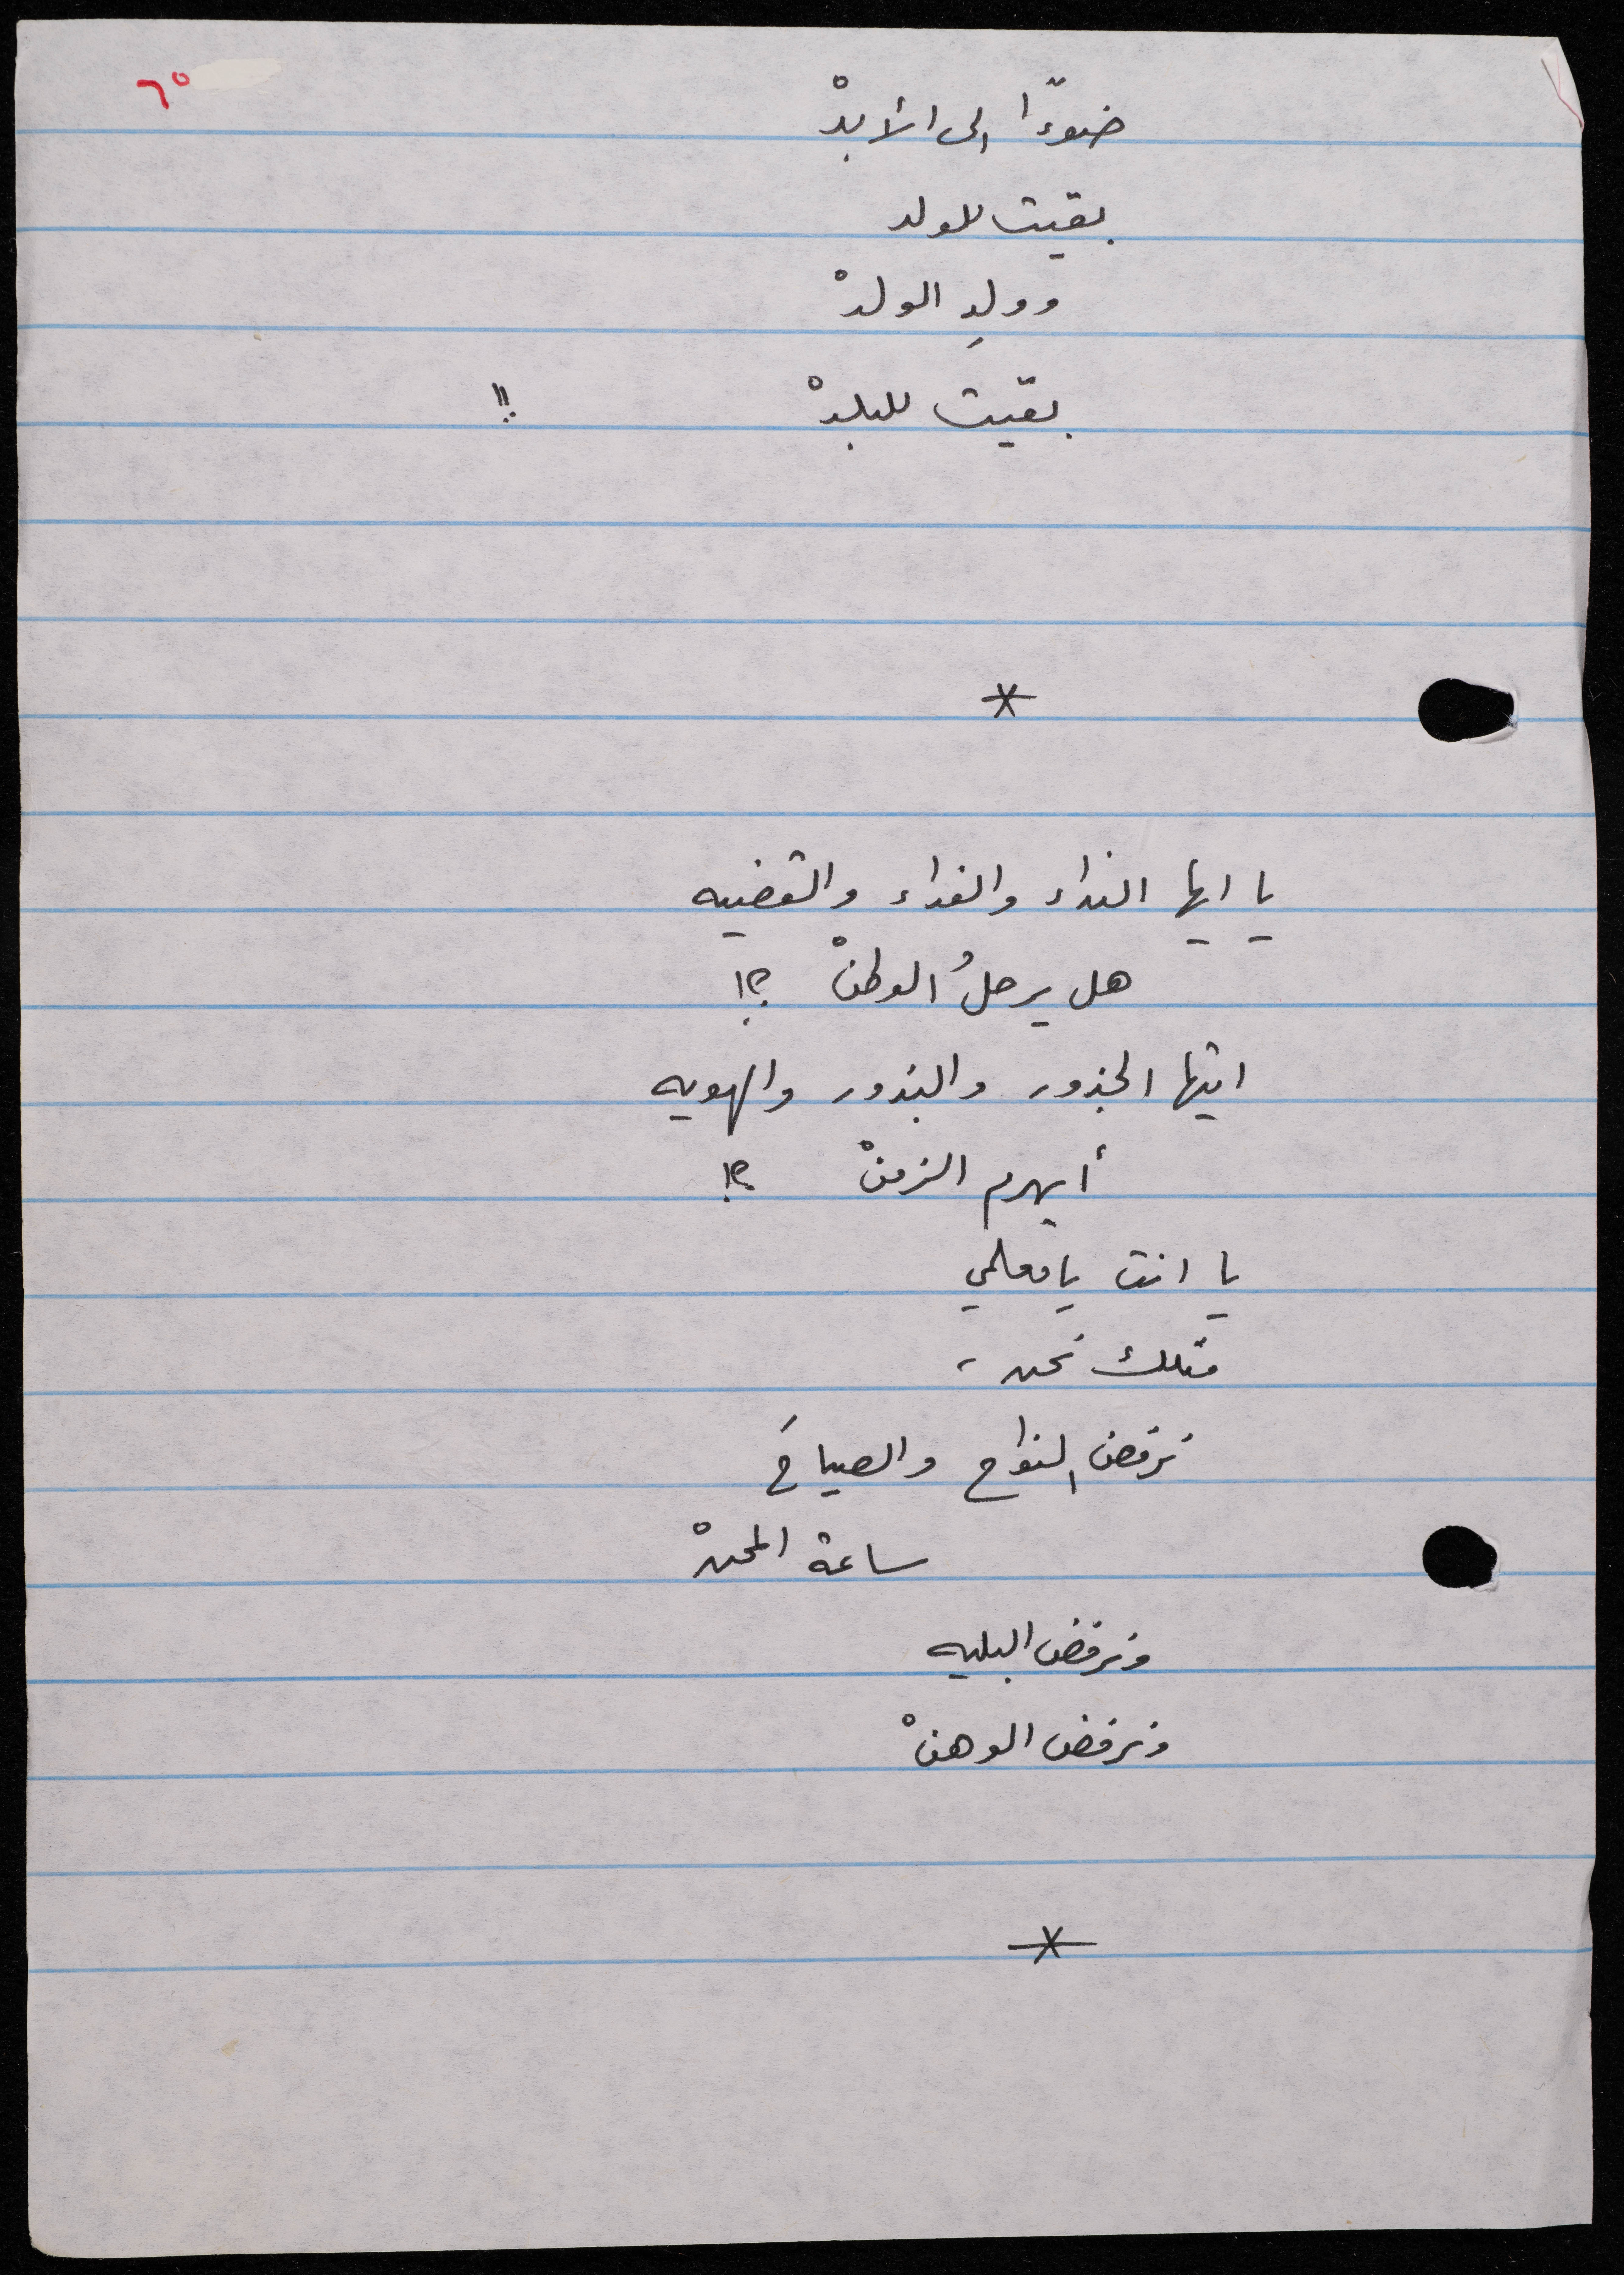 ٦٥
ضوءًا الى الأبدْ
بقيت للولد
وولدِ الولدْ
بقيت للبلدْ !!
*
يا ايها النداء والفداء والقضيه
هل يرحلُ الوطنْ ؟!
ايتها الجذور والبذور والهويه
أيهرم الزمنْ ؟!
يا انت يا معلمي
مثلك نحن ،
نرفض النواح والصياحَ
ساعة المحنْ
ونرفض البليه
ونرفض الوهنْ
*